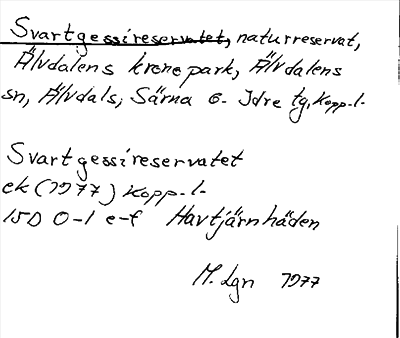 Svartgessireservatet, naturreservat,
Älvdalens kronopark, Älvdalens
sn, Älvdals, Särna o. Idre tg, Kopp.l.
Svartgessireservatet
ek (1977) Kopp.l.
15D 0-1 e-f Havtjärnhäden
M. Lgn 1977